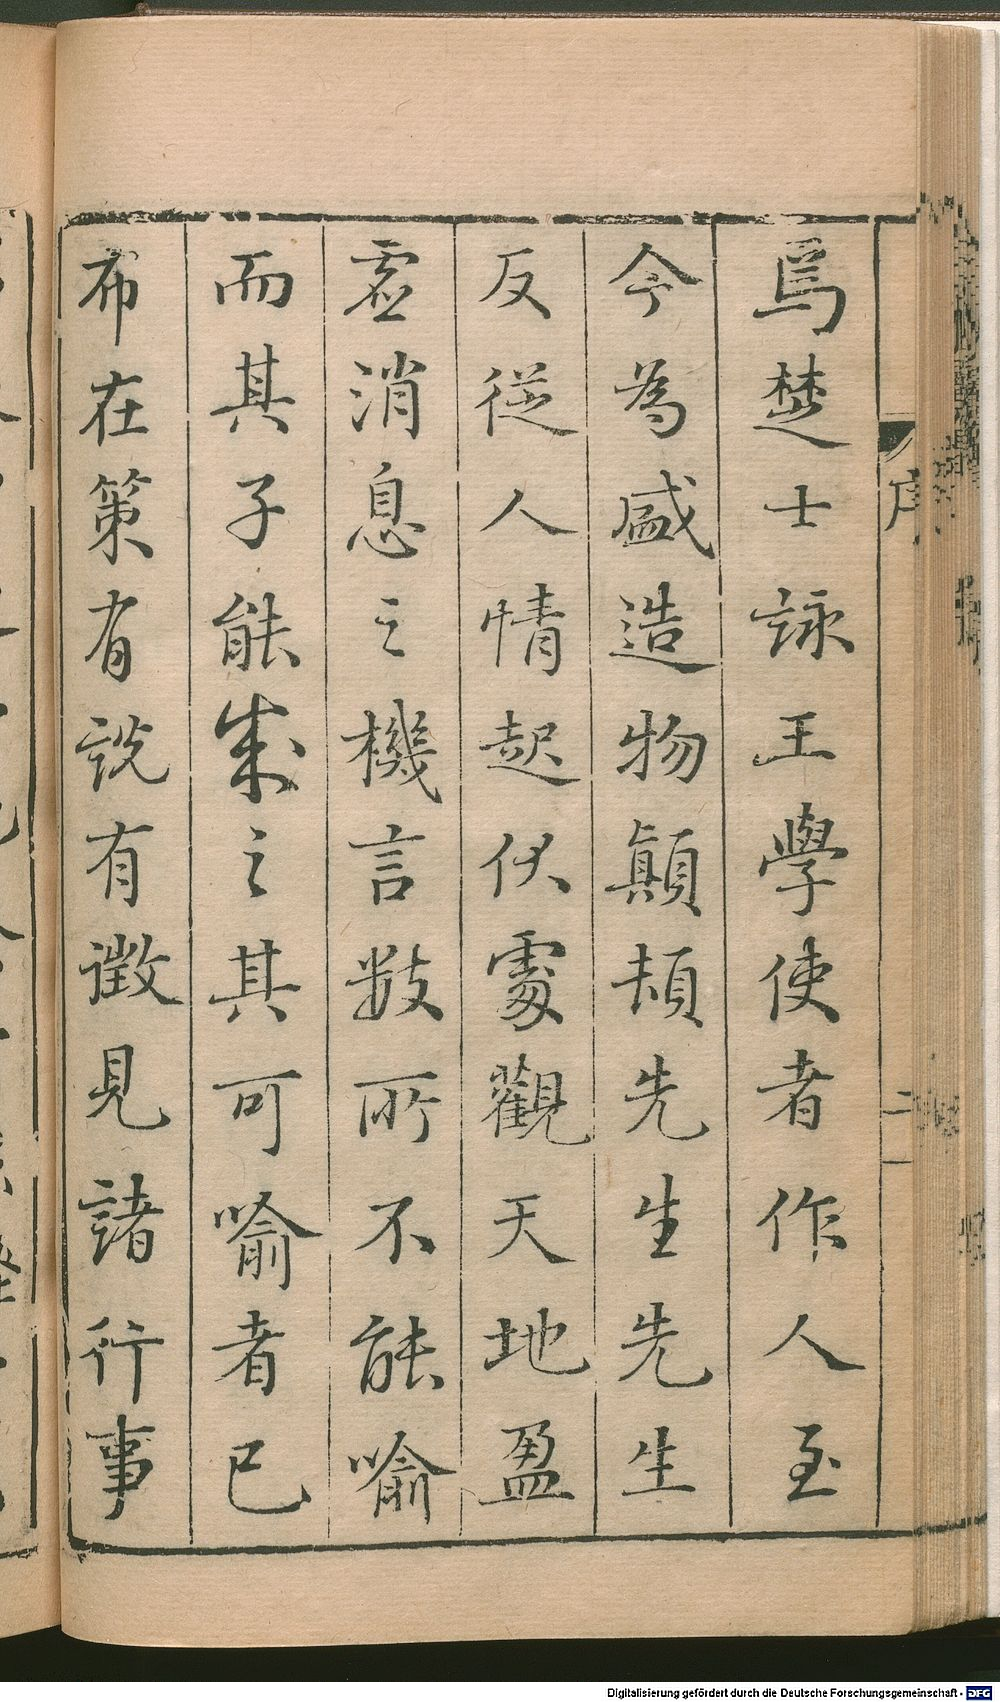 焉楚士詠王學使者作人至
今為盛造物顛頡先生先生
反從人情起伏處觀天地盈
虛消息之機言數所不能喻
而其子能成之其可喻者已
布在策有說有徵見諸行事
序
二
Digitalisierung gefördert durch die Deutsche Forschungsgemeinschaft - DFG